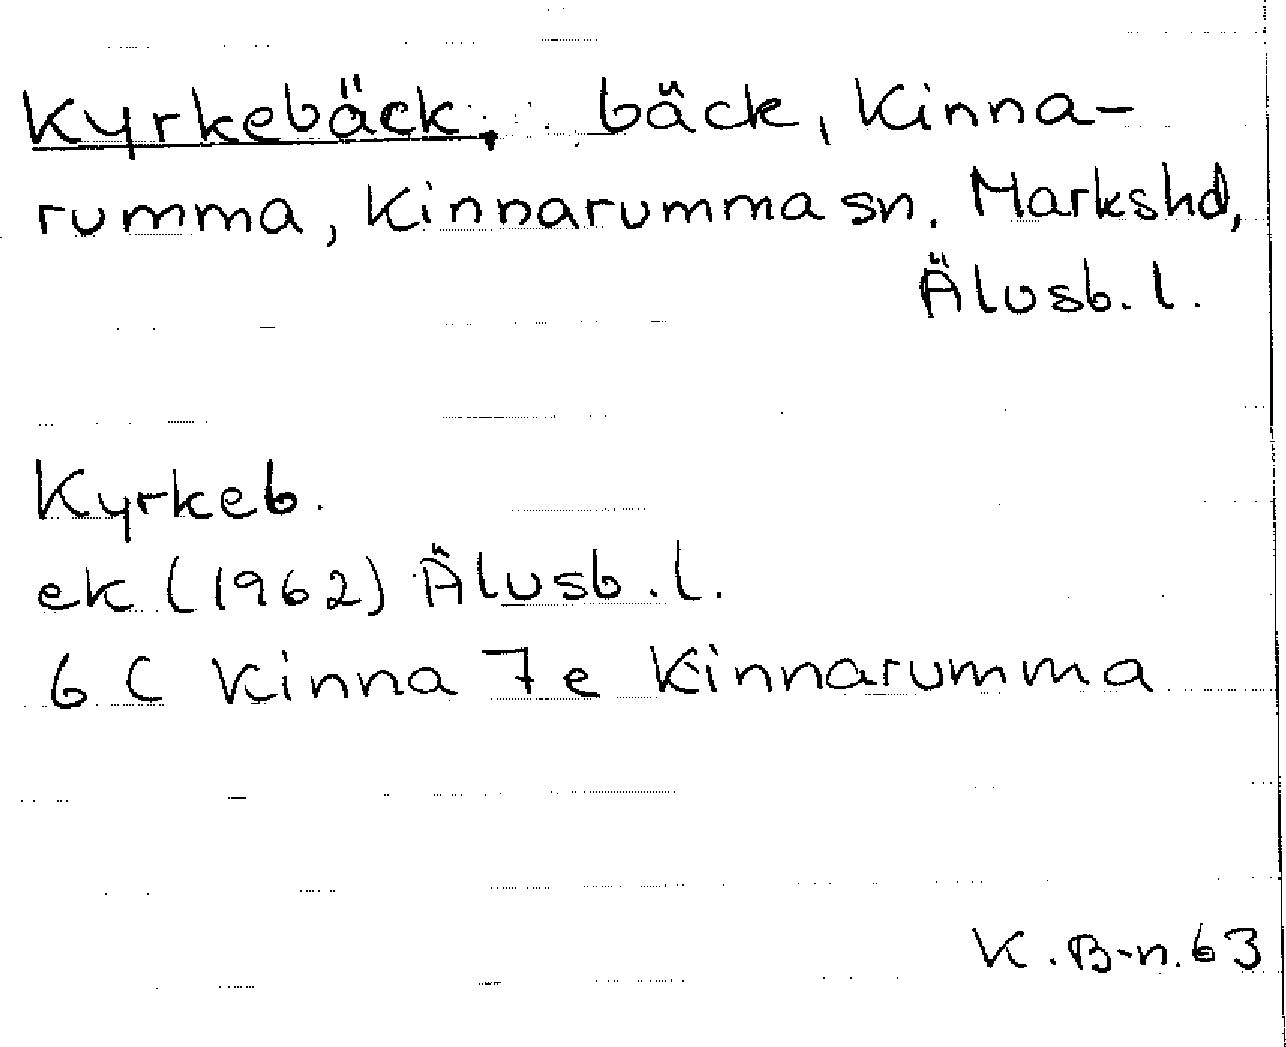 Kyrkebäck, bäck, Kinna-
rumma, Kinnarumma sn. Markshd,
Älvsb. l.
Kyrkeb.
ek (1962) Älvsb. l.
6 C Kinna 7 e Kinnarumma
K. B-n. 63